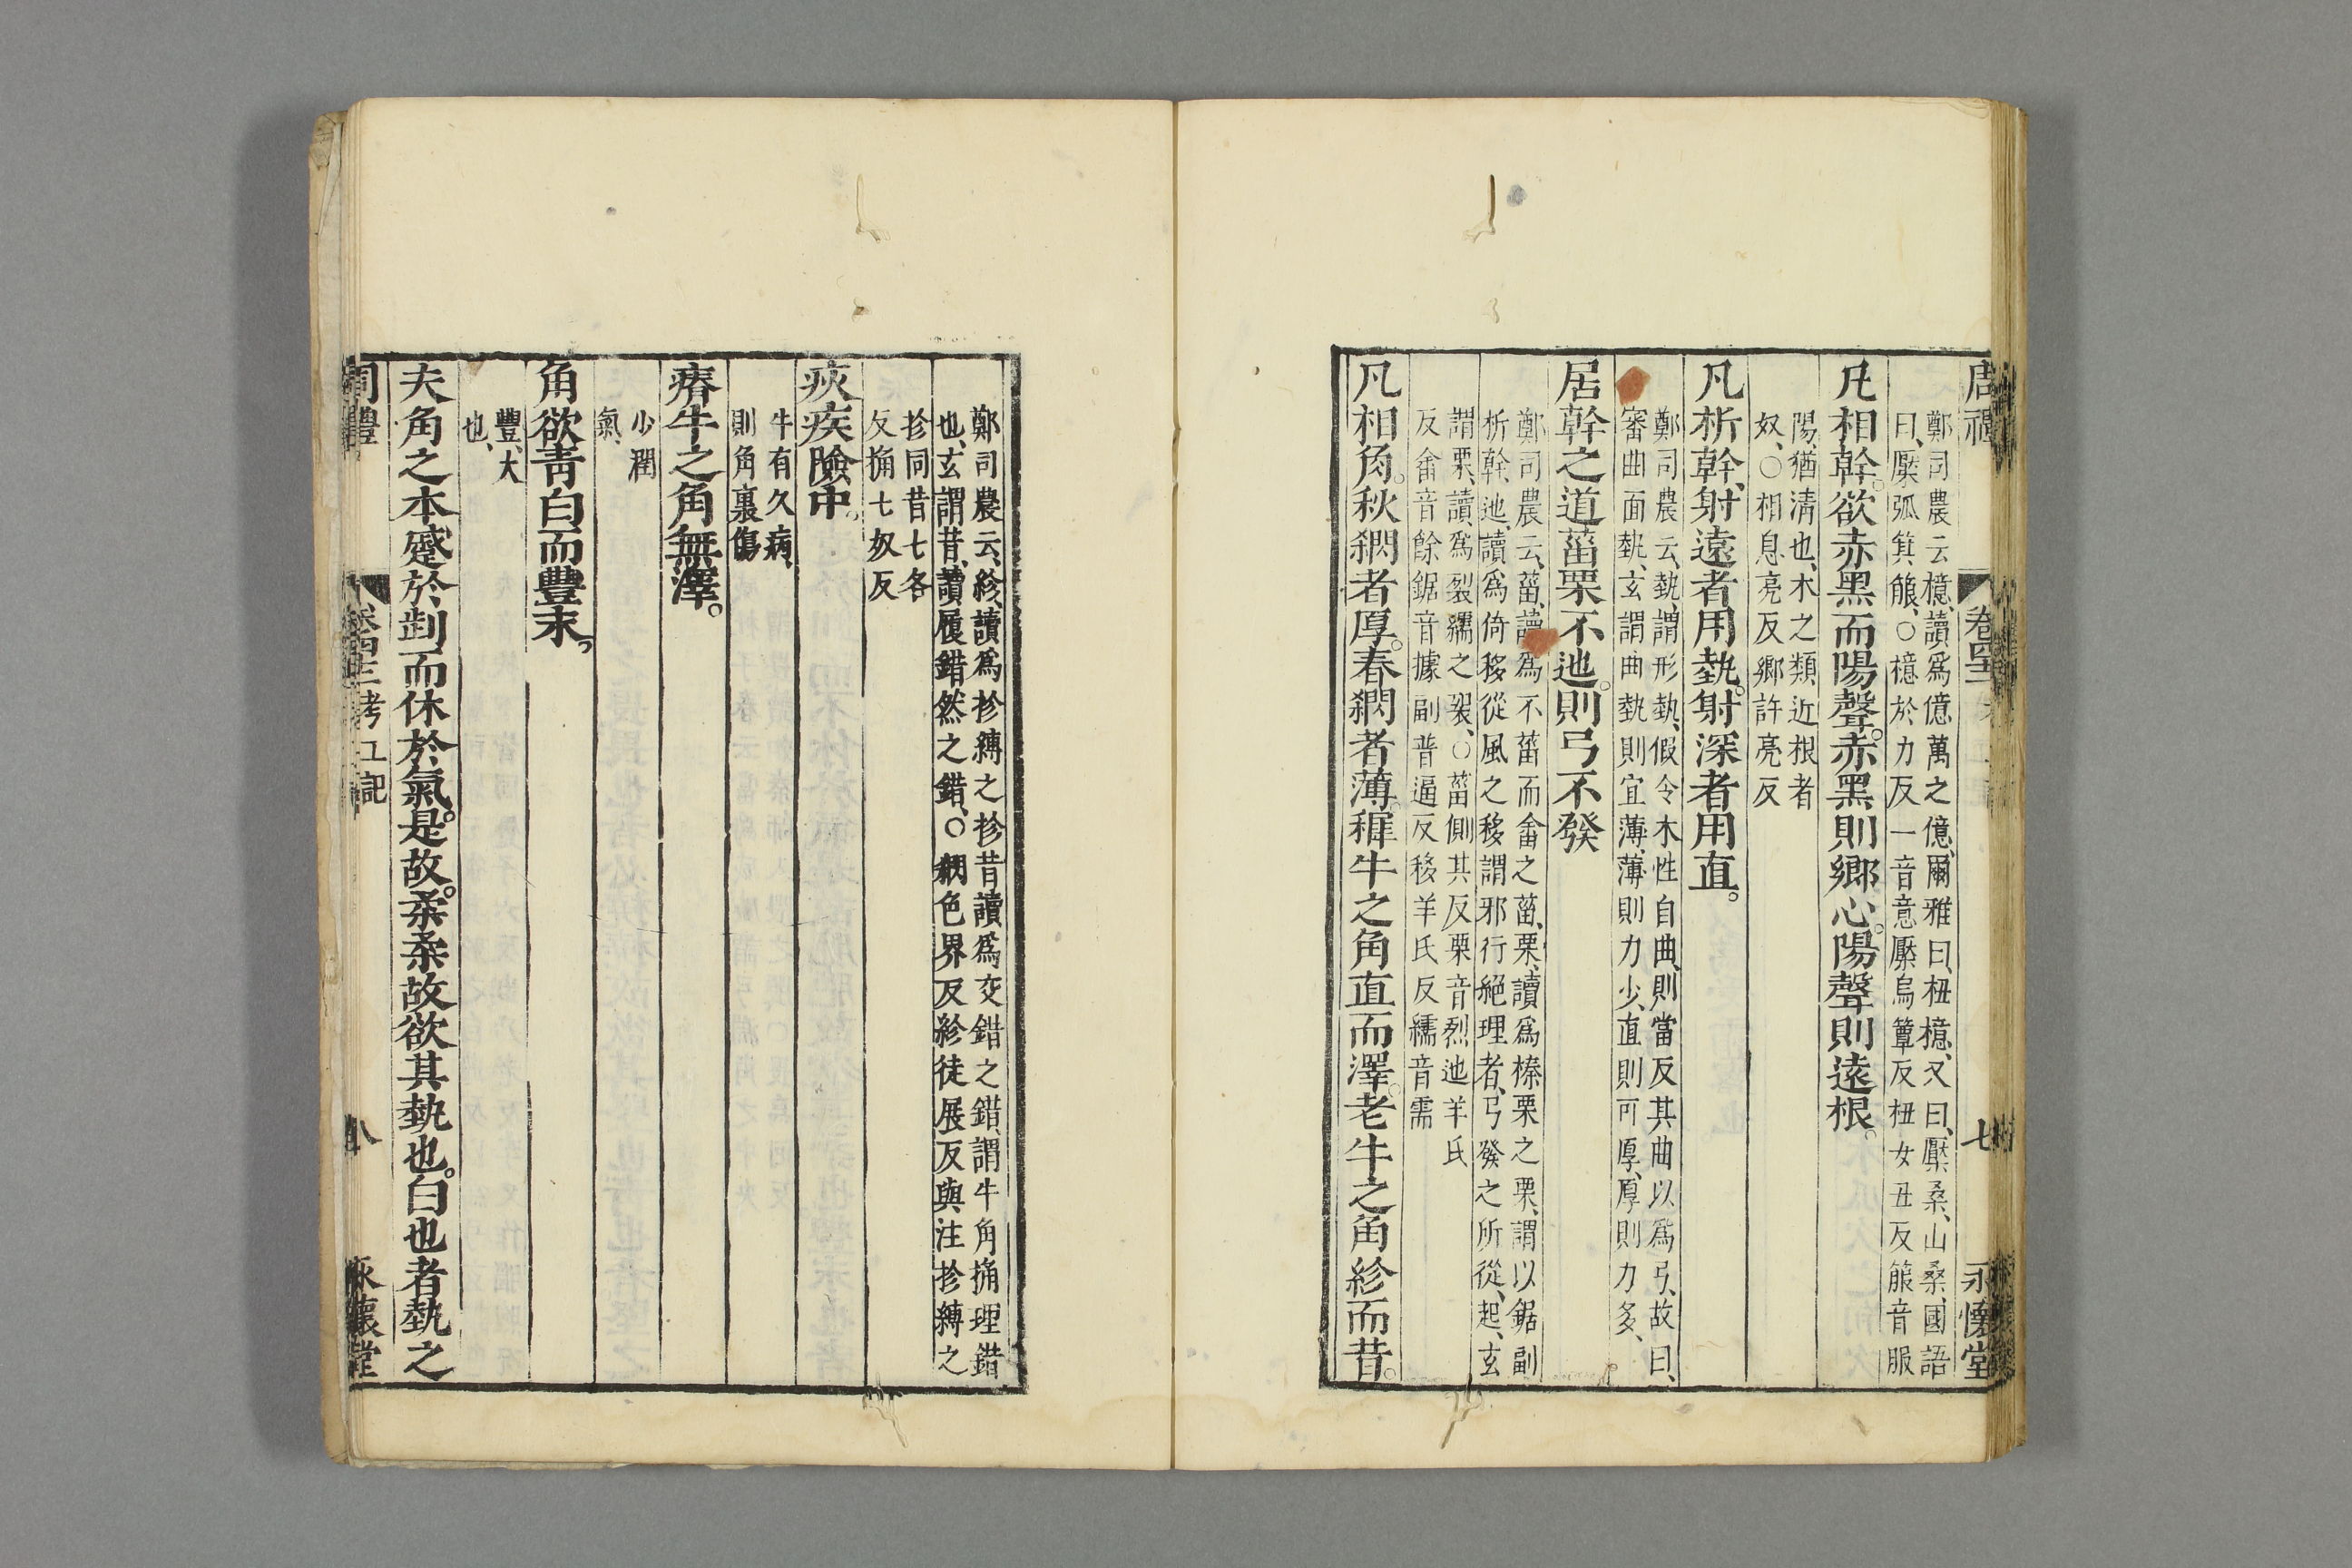 周禮 卷四十二 七 永懷堂
鄭司農云檍、讀爲億萬之億、爾雅曰、杻檍、又曰、檿桑、山桑、國語
曰、檿弧箕箙、○檍於力反一音意檿烏簟反杻女丑反箙音服
凡相幹。欲赤黑而陽聲。赤黑則鄉心。陽聲則遠根。
陽、猶清也、木之類近根者
奴、○相息亮反鄉許亮反
凡析幹、射遠者用埶。射深者用直。
鄭司農云、埶、謂形埶、假令木性自曲、則當反其曲以爲弓、故曰、
審曲面埶、玄謂曲埶則宜薄、薄則力少、直則可厚、厚則力多、
居幹之道菑栗不迆。則弓不發
鄭司農云、菑、讀爲不菑而畬之菑、栗、讀爲榛栗之栗、謂以鋸副
析幹、迆、讀爲倚移從風之移謂邪行絕理者、弓發之所從起、玄
謂栗、讀爲裂繻之裂、○菑側其反栗音烈迆羊氏
反畬音餘鋸音據副普逼反移羊氏反繻音需
凡相角。秋閷者厚。春閷者薄。稺牛之角直而澤。老牛之角紾而昔。
鄭司農云、紾、讀爲抮縛之抮昔讀爲交錯之錯、謂牛角觕理錯
也、玄謂昔、讀履錯然之錯、○閷色界反紾徒展反與注抮縛之
抮同昔七各
反觕七奴反
疢疾險中。
牛有久病、
則角裏傷
瘠牛之角無澤。
少潤
氣、
角欲青白而豐末。
豐、大
也、
夫角之本蹙於𠜶而休於氣。是故。柔柔故欲其埶也。白也者埶之
周禮 卷四十二考工記 八 永懷堂